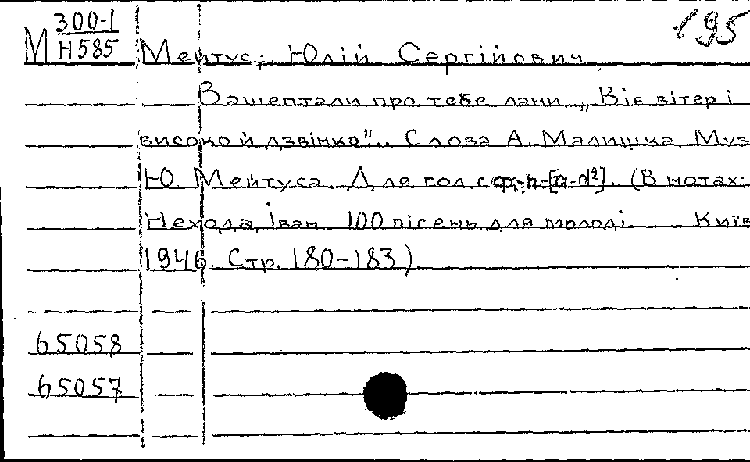 М 300-1
Н585
195
Мейтус, Юлій Сергійович
Зашептали про тебе лани „Віє вітер і
високо й дзвінко". Слова А. Малишка Муз
Ю. Мейтуса. Для гол с ф-п [a-d²]. (В нотах:
Нехода, Іван 100 пісень для молоді. Київ
1946. Стр. 180-183)
65058
65057